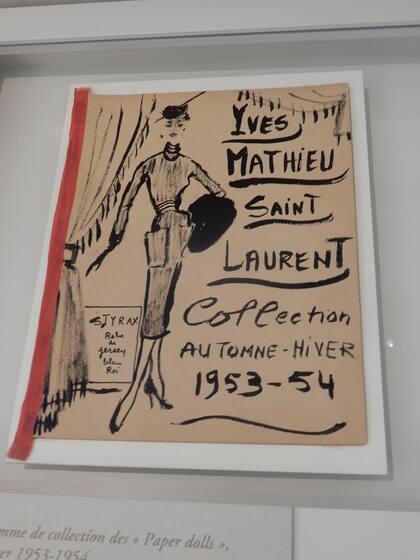 YVES
MATHIEU
SAINT
LAURENT
Collection
AUTOMNE-HIVER
1953-54
STYRAX
Robe
de
jersey
bleu
Roi
de collection des « Paper dolls »,
1953-1954